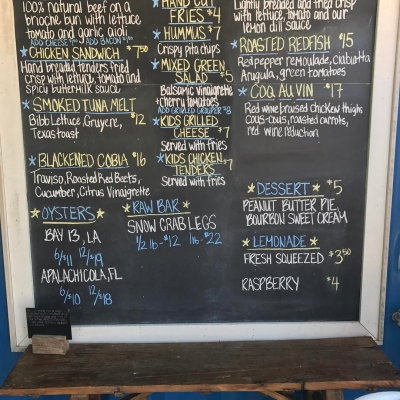 100% natural beef on a
brioche bun with lettuce
tomato and garlic aioli
ADD BACON
★ CHICKEN SANDWICH $7.50
Hand breaded tenders fried
crisp with lettuce, tomato and
spicy buttermilk sauce
★ SMOKED TUNA MELT
Bibb Lettuce, Gruyere, $12
Texas toast
★ BLACKENED COBIA $16
Traviso, Roasted Red Beets,
Cucumber, Citrus Vinaigrette
★ OYSTERS ★
BAY 13, LA
6/$11 12/$19
APALACHICOLA, FL
6/$10 12/$18
HAND CUT
FRIES $4
★ HUMMUS $7
Crispy pita chips
★ MIXED GREEN
SALAD $5
Balsamic vinaigrette
+ cherry tomatoes
ADD GRILLED GROUPER $8
★ KIDS GRILLED
CHEESE $7
Served with fries
★ KIDS CHICKEN
TENDERS $7
Served with fries
★ RAW BAR ★
SNOW CRAB LEGS
1/2 lb - $12 1 lb - $22
Lightly breaded and fried crisp
with lettuce, tomato and our
lemon dill sauce
★ ROASTED REDFISH $15
Red pepper remoulade, ciabatta
Arugula, green tomatoes
★ COQ AU VIN $17
Red wine braised chicken thighs
cous-cous, roasted carrots,
red wine reduction
★ DESSERT ★ $5
PEANUT BUTTER PIE,
BOURBON SWEET CREAM
★ LEMONADE ★
FRESH SQUEEZED $3.50
RASPBERRY $4